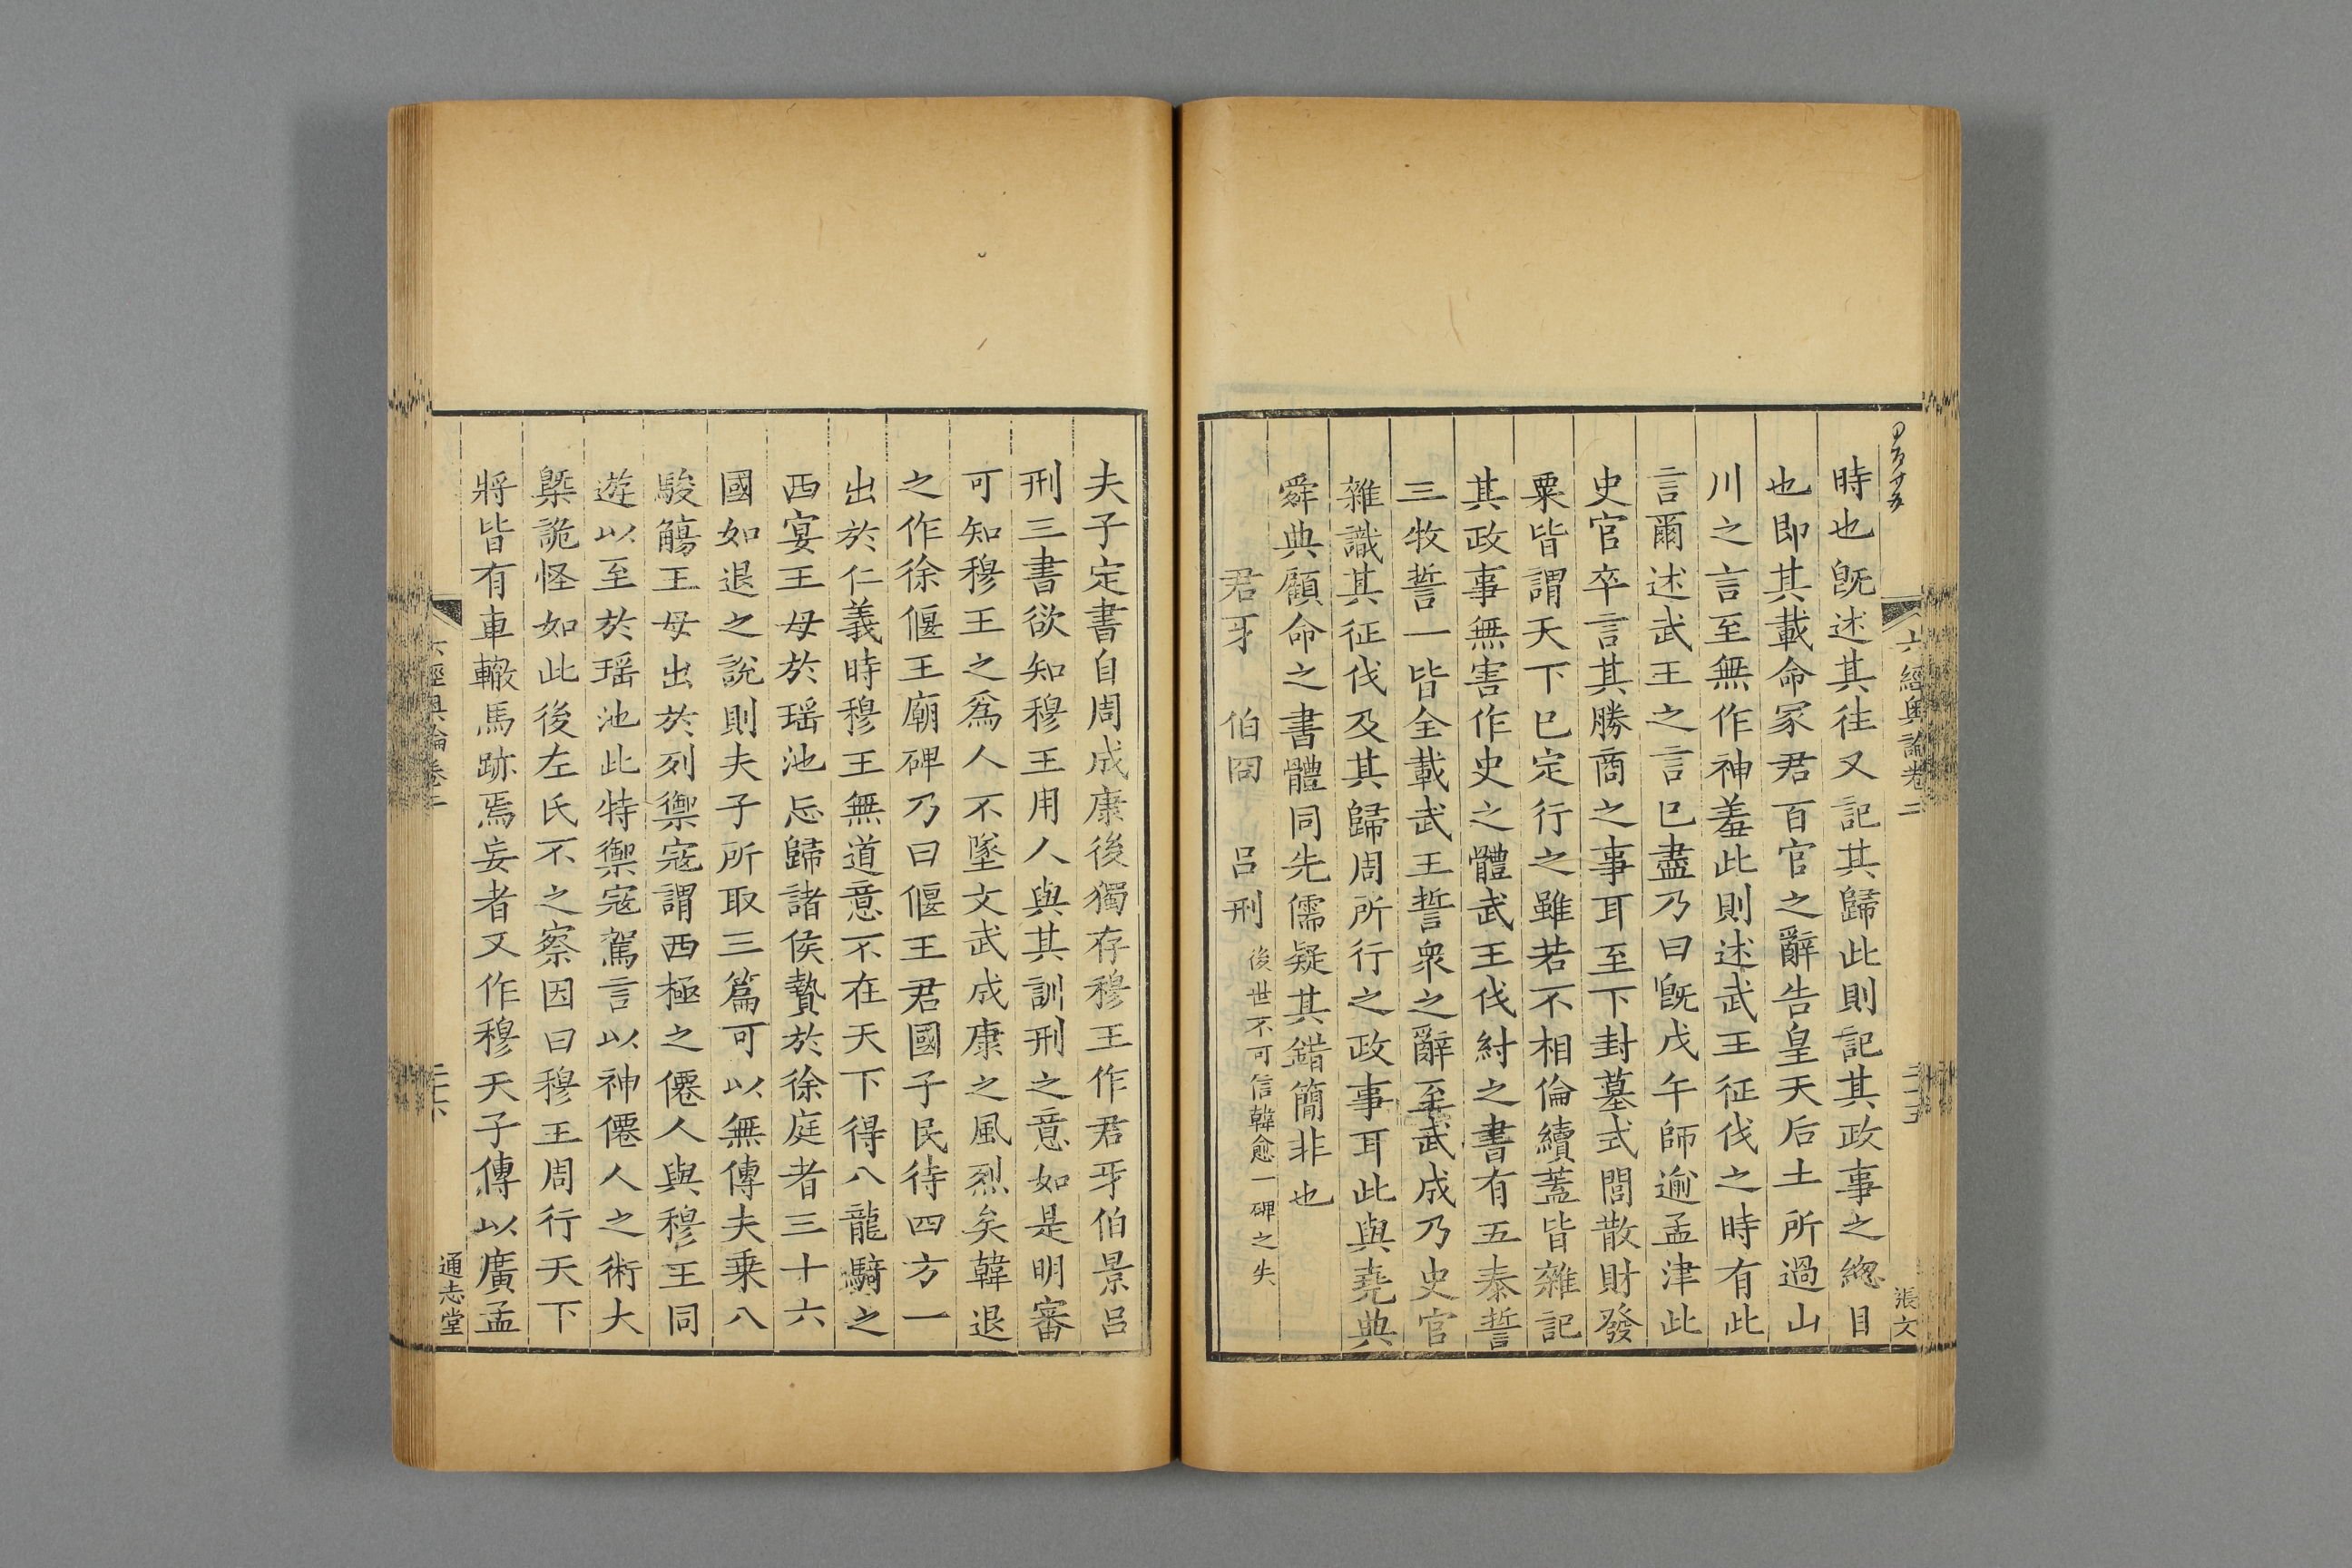 六經奧論卷二
張文
時也旣述其往又記其歸此則記其政事之緫目
也即其載命冢君百官之辭告皇天后土所過山
川之言至無作神羞此則述武王征伐之時有此
言爾述武王之言已盡乃曰旣戊午師逾孟津此
史官卒言其勝商之事耳至下封墓式閭散財發
粟皆謂天下已定行之雖若不相倫續蓋皆雜記
其政事無害作史之體武王伐紂之書有五泰誓
三牧誓一皆全載武王誓衆之辭至武成乃史官
雜識其征伐及其歸周所行之政事耳此與堯典
舜典顧命之書體同先儒疑其錯簡非也
君牙 伯冏 呂刑 後世不可信韓愈一碑之失
夫子定書自周成康後獨存穆王作君牙伯景呂
刑三書欲知穆王用人與其訓刑之意如是明審
可知穆王之爲人不墜文武成康之風烈矣韓退
之作徐偃王廟碑乃曰偃王君國子民待四方一
出於仁義時穆王無道意不在天下得八龍騎之
西宴王母於瑶池忘歸諸侯贄於徐庭者三十六
國如退之說則夫子所取三篇可以無傳夫乗八
駿觴王母出於列禦寇謂西極之僊人與穆王同
遊以至於瑶池此特禦寇駕言以神僊人之術大
槩詭怪如此後左氏不之察因曰穆王周行天下
將皆有車轍馬跡焉妄者又作穆天子傳以廣孟
六經奧論卷二
通志堂